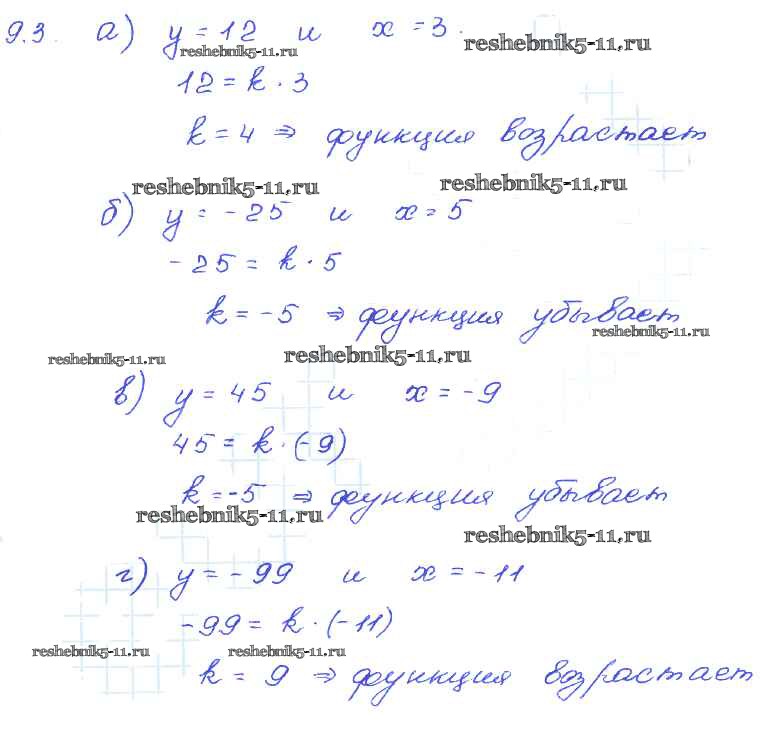 9.3. а) y = 12 и x = 3.
reshebnik5-11.ru reshebnik5-11.ru
12 = k · 3
k = 4 ⇒ функция возрастает
reshebnik5-11.ru reshebnik5-11.ru
б) y = -25 и x = 5
-25 = k · 5
k = -5 ⇒ функция убывает
reshebnik5-11.ru
reshebnik5-11.ru reshebnik5-11.ru
в) y = 45 и x = -9
45 = k · (-9)
k = -5 ⇒ функция убывает
reshebnik5-11.ru
reshebnik5-11.ru
г) y = -99 и x = -11
-99 = k · (-11)
reshebnik5-11.ru reshebnik5-11.ru
k = 9 ⇒ функция возрастает